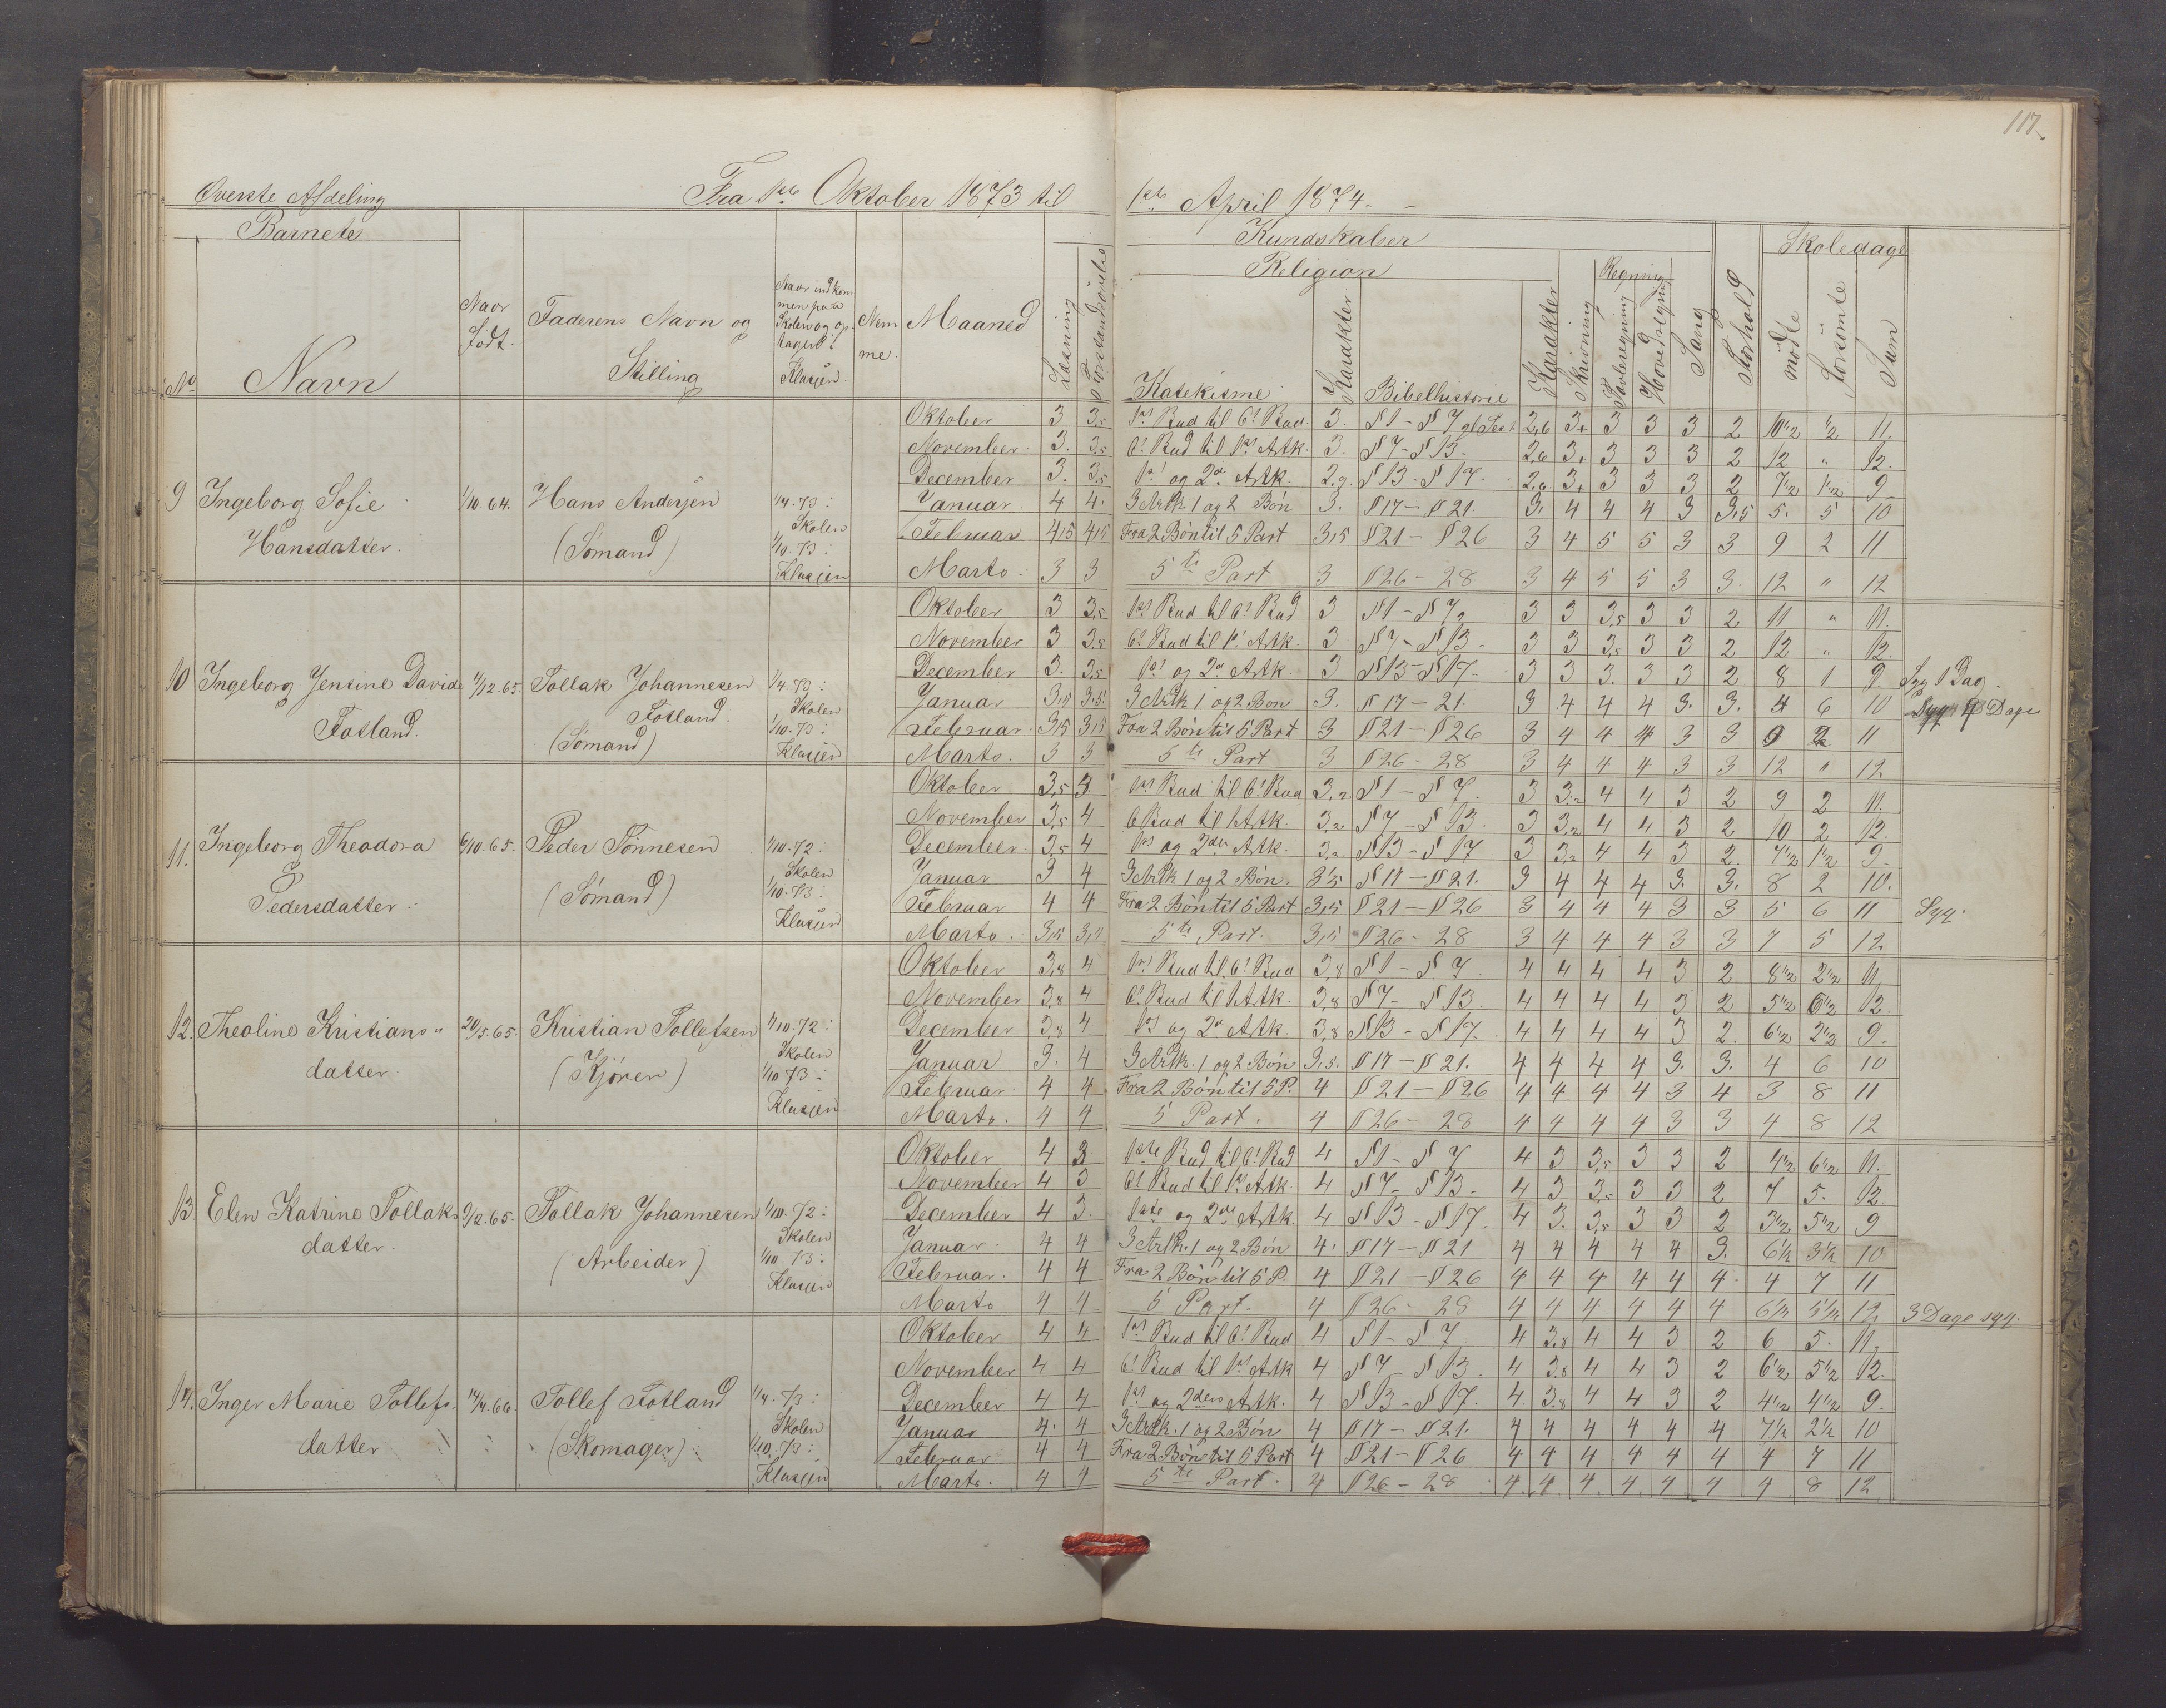 117.
Øverste Afdeling Fra 1ste Oktober 1873 til 1ste April 1874.
Barnets Kundskaber Skoledage
Religion Regning
No Navn Naar født. Faderens Navn og Stilling Naar indkommen paa Skolen og optagen i Klassen. Nemme. Maaned Læsning Forstandsøvelse Katekisme Karakter Bibelhistorie Karakter Skrivning Tavleregning Hovedregning Sang Forhold mödte forsömte Sum
Oktober 3 3,5 1ste Bud til 6te Bud 3. § 1 - § 7 gl Test 2,6 3+ 3 3 3 2 10 1/2 1/2 11.
November 3. 3,5 6te Bud til 1ste Artk. 3. § 7 - § 13. 2,6 3+ 3 3 3 2 12 " 12.
December 3. 3,5 1ste og 2den Artk. 2,9. § 13 - § 17. 2,6 3+ 3 3 3 2 7 1/2 1 1/2 9
9 Ingeborg Sofie 1/10.64. Hans Andersen 1/4.73: Januar 4 4. 3 Artk 1 og 2 Bøn 3. § 17 - § 21. 3. 4 4 4 3 3,5 5. 5 10
Hansdatter. (Sømand) Skolen 1/10.73: Februar 4,5 4,5 Fra 2 Bøn til 5 Part 3,5 § 21 - § 26 3 4 5 5 3 3 9 2 11
Klassen Marts. 3 3 5te Part 3 § 26 - 28 3 4 5 5 3 3. 12 " 12
Oktober 3 3,5 1ste Bud til 6te Bud 3 § 1 - § 7 3 3 3,5 3 3 2 11 " 11.
November 3 3,5 6te Bud til 1ste Artk. 3 § 7 - § 13 - 3 3 3,5 3 3 2 12 " 12.
10 Ingeborg Jensine Davida 11/12.65. Tollak Johannesen 1/4.73: December 3. 3,5 1ste og 2den Artk. 3 § 13 - § 17. 3 3 3. 3 3 2 8 1 9 Syg 1 Dag
Skolen Januar 3,5 3,5. 3 Artk 1 og 2 Bøn 3. § 17 - 21. 3 4 4 4 3. 3. 4 6 10 Syg 4 Dage
Fotland. Fotland. (Sømand) 1/10.73: Februar. 3,5 3,5 Fra 2 Bøn til 5 Part 3 § 21 - § 26 3 4 4 4 3 3 9 2 11
Klassen Marts. 3 3 5te Part 3 § 26 - 28 3 4 4 4 3 3 12 " 12
Oktober 3,5 3 1ste Bud til 6te Bud 3,2 § 1 - § 7. 3 3,2 4 4 3 2 9 2 11.
November 3,5 4 6 Bud til 1 Artk. 3,2 § 7 - § 13. 3 3,2 4 4 3 2 10 2 12.
11. Ingeborg Theodora 6/10.65. Peder Tønnesen 1/10.72: December. 3,5 4 1ste og 2den Artk. 3,2. § 13 - § 17 3 3,2 4 4 3 2. 7 1/2 1 1/2 9
Skolen Januar 3 4 3 Artk 1 og 2 Bøn. 3,5 § 17 - § 21. 3 4 4 4 3. 3. 8 2 10.
Pedersdatter. (Sømand) 1/10.73: Februar 4 4 Fra 2 Bøn til 5 Part 3,5 § 21 - § 26 3 4 4 4 3 3 5 6 11 Syg.
Klassen Marts. 3,5 3,5 5te Part. 3,5 § 26 - 28 3 4 4 4 3 3 7 5 12
Oktober 3,8 4 1ste Bud til 6te Bud 3,8 § 1 - § 7. 4 4 4 4 3 2 8 1/2 2 1/2 11
November 3,8 4 6te Bud til 1 Artk. 3,8 § 7 - § 13. 4 4 4 4 3 2 5 1/2 6 1/2 12.
12. Theoline Kristians- 20/5.65. Kristian Tollefsen 1/10.72: December 3,8 4 1ste og 2den Artk. 3,8 § 13 - § 17. 4 4 4 4 3 2. 6 1/2 2 1/2 9.
datter. (Kjører) Skolen Januar 3. 4 3 Artk. 1 og 2 Bøn 3,5. § 17 - § 21. 4 4 4 4 3. 3. 4 6 10
1/10 73: Februar. 4 4 Fra 2 Bøn til 5 P. 4 § 21 - § 26 4 4 4 4 3 4 3 8 11
Klassen Marts. 4 4 5 Part. 4 § 26 - 28 4 4 4 4 3 3 4 8 12
Oktober 4 3 1ste Bud til 6te Bud 4 § 1 - § 7 4 3 3,5 3 3 2 4 1/2 6 1/2 11.
November 4 3 6te Bud til 1ste Artk. 4 § 7 - § 13. 4 3 3,5 3 3 2 7 5. 12.
13. Elen Katrine Tollaks- 9/12.65. Tollak Johannesen 1/10.72: December 4 3. 1ste og 2den Artk. 4 § 13 - § 17. 4 3. 3,5 3 3 2 3 1/2 5 1/2 9
datter. (Arbeider) Skolen Januar. 4 4 3 Artk. 1 og 2 Bøn 4. § 17 - § 21 4 4 4 4 4 3. 6 1/2 3 1/2 10
1/10.73: Februar. 4 4 Fra 2 Bøn til 5 P. 4 § 21 - § 26 4 4 4 4 4 4. 4 7 11
Klassen Marts 4 4 5 Part. 4 § 26 - 28 4 4 4 4 4 4 6 1/2 5 1/2 12 3 Dage syg.
Oktober 4 4 1ste Bud til 6te Bud 4 § 1 - § 7. 4 3,8 4 4 3 2 6 5. 11.
November 4 4 6te Bud til 1ste Artk 4 § 7 - § 13. 4 3,8 4 4 3 2 6 1/2 5 1/2 12.
14. Inger Marie Tollefs- 14/4.66. Tollef Fotland 1/4.73: December 4 4 1ste og 2den Artk. 4 § 13 - § 17. 4. 3,8 4 4 3 2 4 1/2 4 1/2 9.
datter (Skomager) Skolen Januar 4. 4 3 Artk. 1 og 2 Bøn 4 § 17 - § 21. 4 4 4 4 4 4 7 1/2 2 1/2 10
1/10.73: Februar 4 4 Fra 2 Bøn til 5 Part 4 § 21 - § 26 4 4 4 4 4 4 4 7 11
Klassen Marts. 4 4 5te Part. 4 § 26 - 28 4. 4. 4. 4. 4. 4 4 8 12